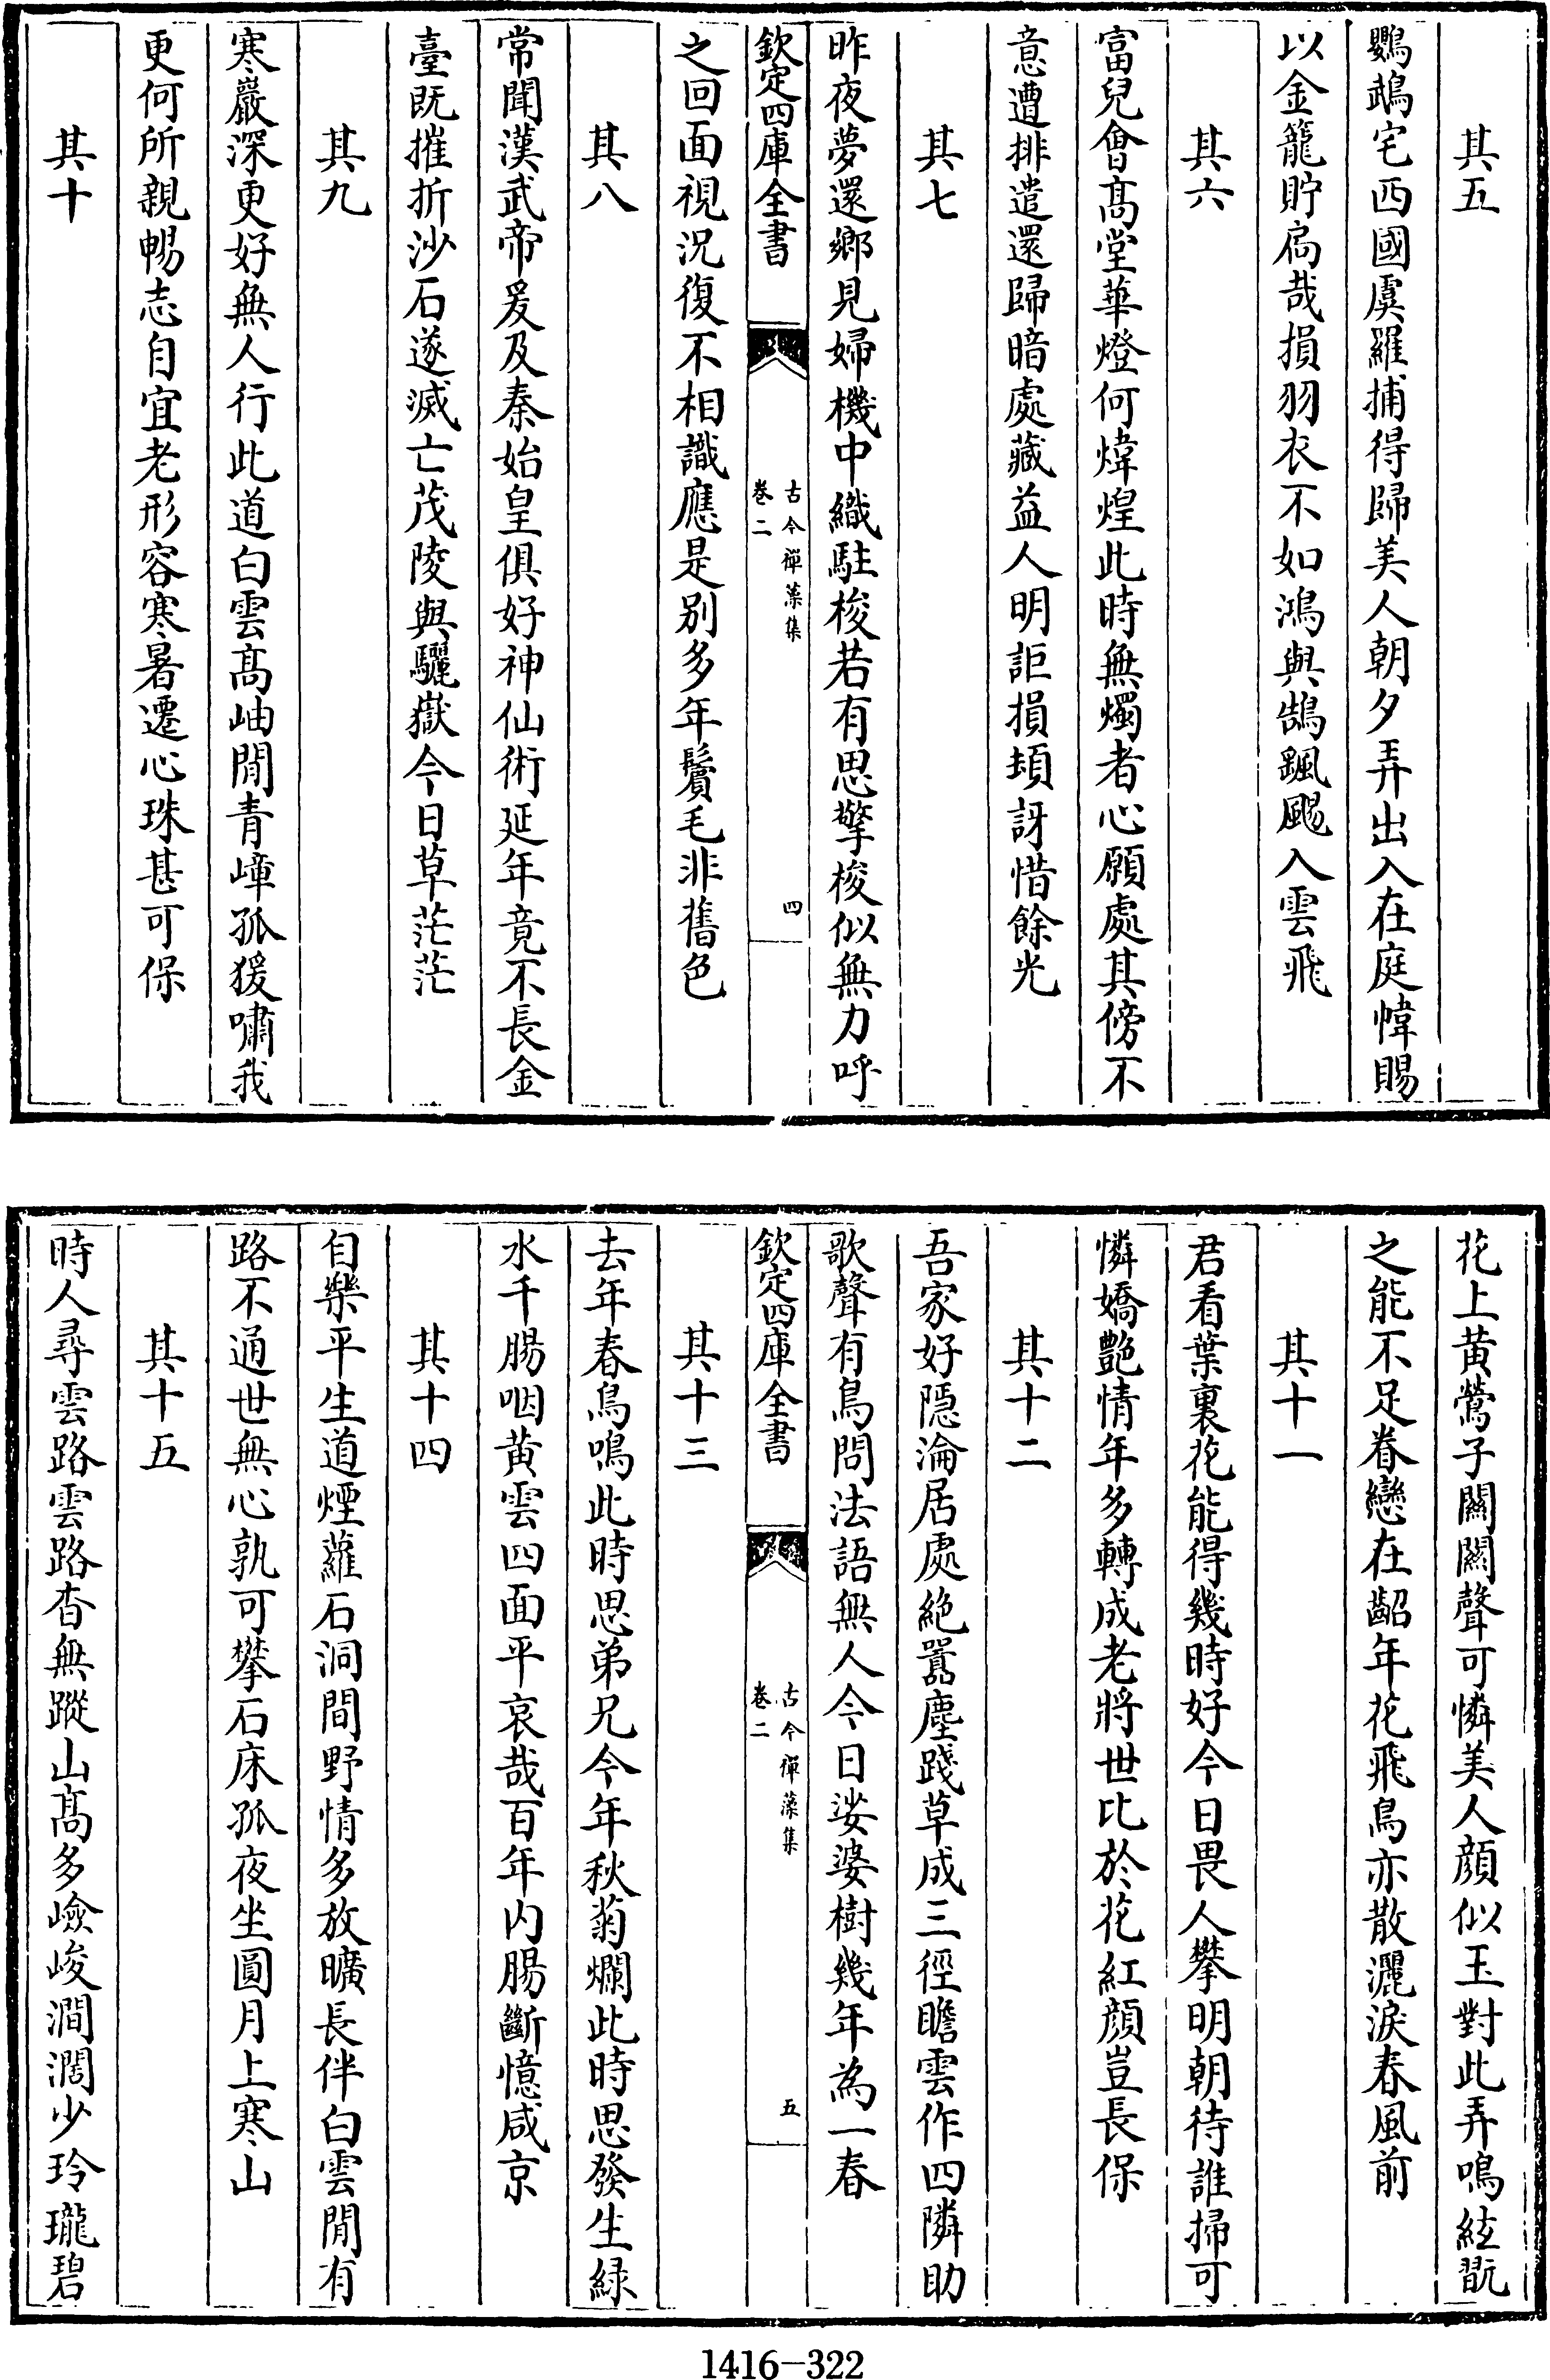 其五
鸚鵡宅西國虞羅捕得歸美人朝夕弄出入在庭幃賜
以金籠貯扃哉損羽衣不如鴻與鵠颻颺入雲飛
其六
富兒會髙堂華燈何煒煌此時無燭者心願處其傍不
意遭排遣還歸暗處藏益人明詎損頓訝惜餘光
其七
昨夜夢還鄉見婦機中織駐梭若有思擎梭似無力呼
欽定四庫全書
古今禪藻集
卷二
四
之回面視況復不相識應是别多年鬢毛非舊色
其八
常聞漢武帝爰及秦始皇俱好神仙術延年竟不長金
臺既摧折沙石遂滅亡茂陵與驪嶽今日草茫茫
其九
寒巖深更好無人行此道白雲髙岫閒青嶂孤猨嘯我
更何所親暢志自宜老形容寒暑遷心珠甚可保
其十
花上黄鶯子關關聲可憐美人顔似玉對此弄鳴絃翫
之能不足眷戀在齠年花飛鳥亦散灑淚春風前
其十一
君看葉裏花能得幾時好今日畏人攀明朝待誰掃可
憐嬌艷情年多轉成老將世比於花紅顔豈長保
其十二
吾家好隠淪居處絶囂塵踐草成三徑瞻雲作四隣助
歌聲有鳥問法語無人今日娑婆樹幾年為一春
欽定四庫全書
古今禪藻集
卷二
五
其十三
去年春鳥鳴此時思弟兄今年秋菊爛此時思發生緑
水千腸咽黄雲四面平哀哉百年内腸斷憶咸京
其十四
自樂平生道煙蘿石洞間野情多放曠長伴白雲閒有
路不通世無心孰可攀石床孤夜坐圓月上寒山
其十五
時人尋雲路雲路杳無蹤山髙多嶮峻澗濶少玲瓏碧
1416-322